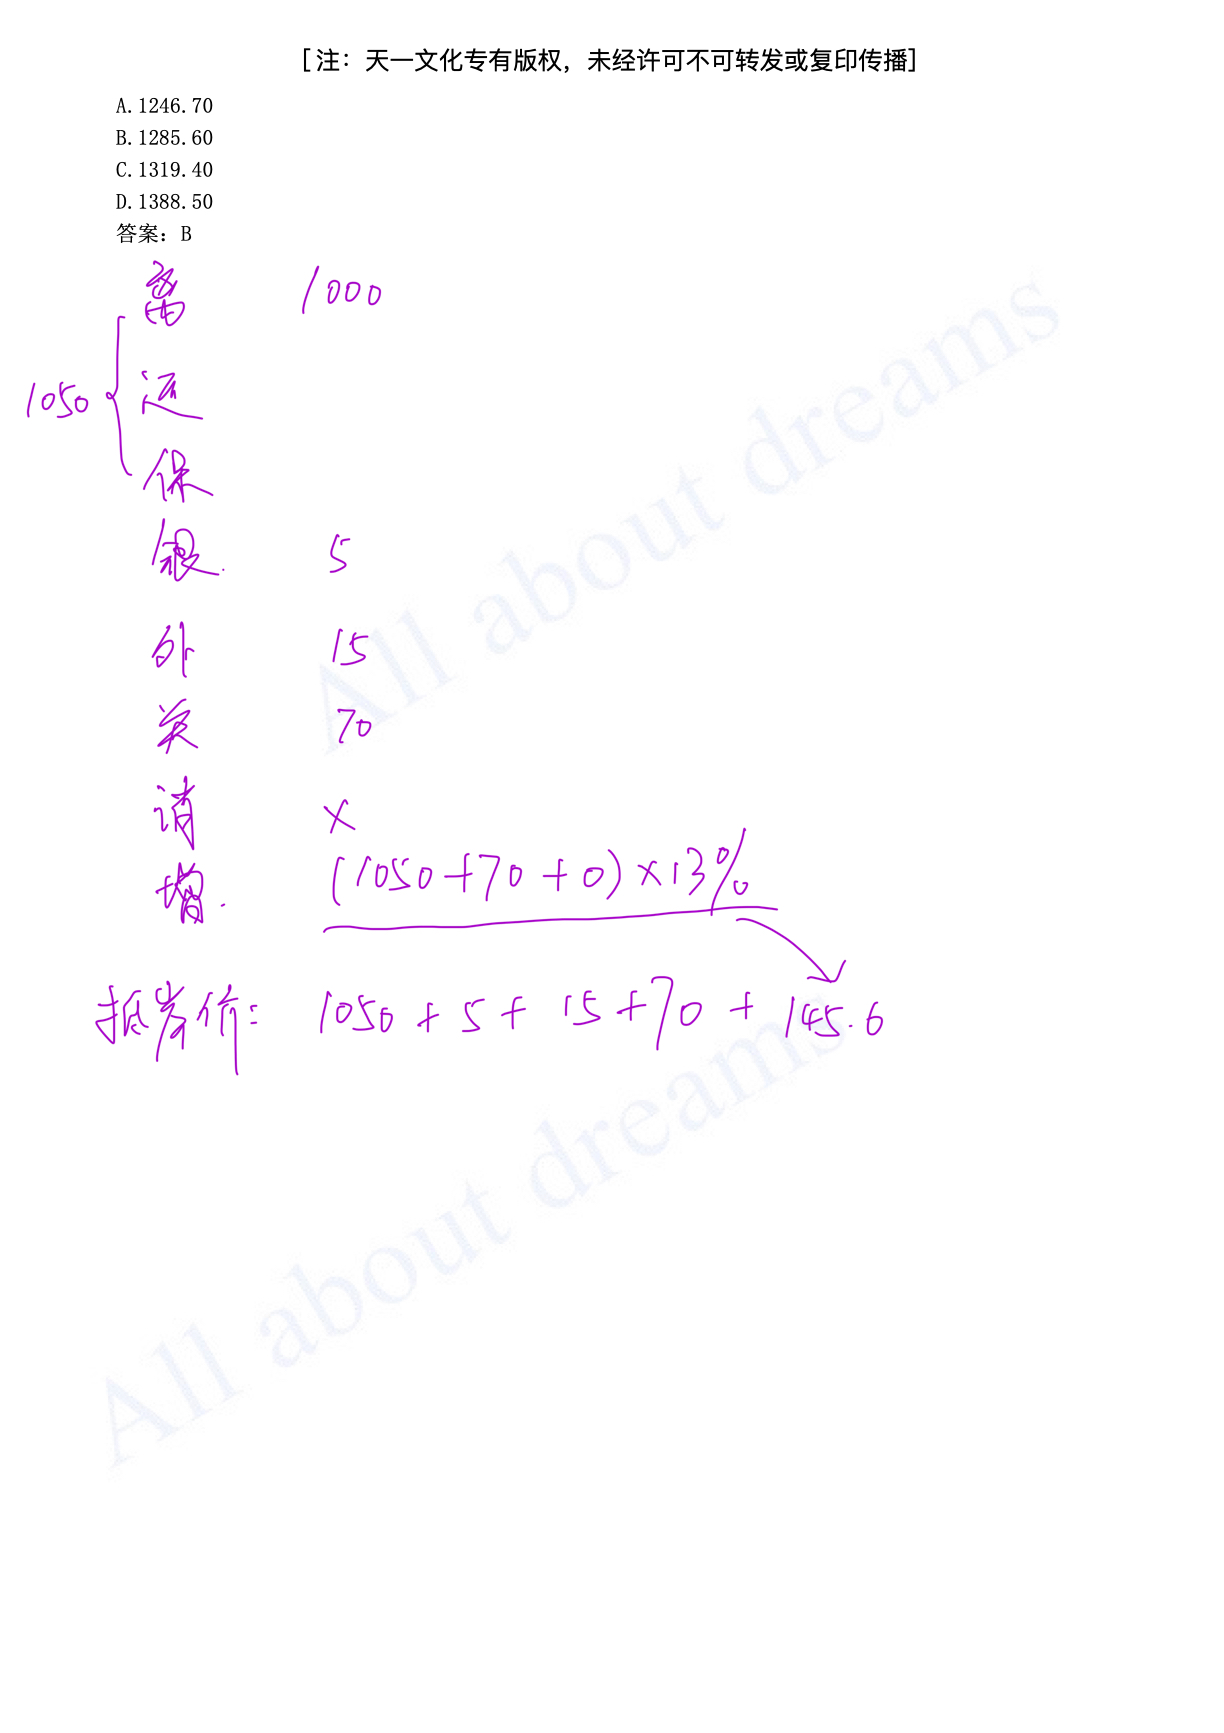 [注：天一文化专有版权，未经许可不可转发或复印传播]
A.1246.70
B.1285.60
C.1319.40
D.1388.50
答案：B
离 1000
1050 { 运
保
银. 5
外 15
关 70
消 ×
增. (1050+70+0)×13%
抵岸价: 1050+5+15+70+145.6
All about dreams
All about dreams